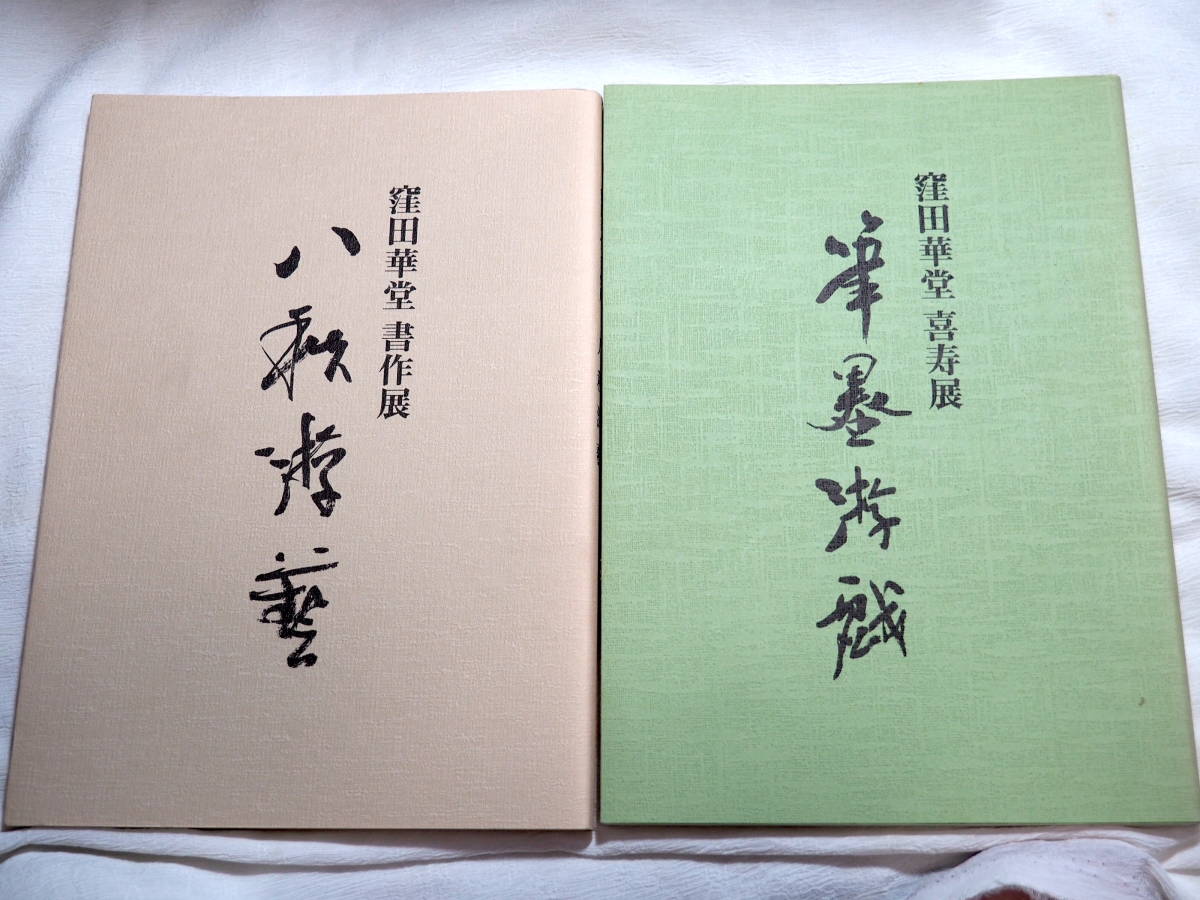 窪田華堂 書作展
八秩游藝
窪田華堂 喜寿展
筆墨游戯